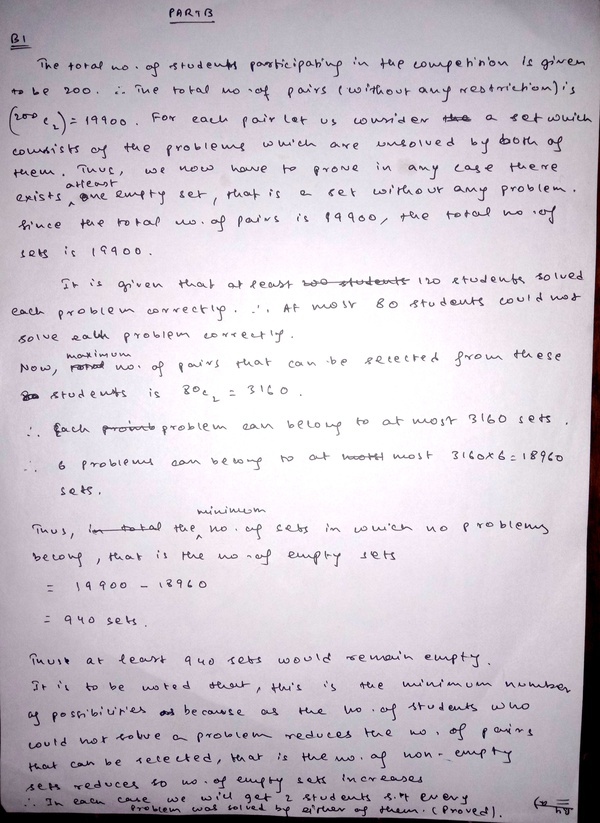 PART B
B1
The total no. of students participating in the competition is given
to be 200. ∴ The total no. of pairs (without any restriction) is
(200c2) = 19900. For each pair let us consider the a set which
consists of the problems which are unsolved by both of
them. Thus, we now have to prove in any case there
exists atleast one empty set, that is a set without any problem.
Since the total no. of pairs is 19900, the total no. of
sets is 19900.
It is given that at least 200 students 120 students solved
each problem correctly. ∴ At most 80 students could not
solve each problem correctly.
Now, total maximum no. of pairs that can be selected from these
80 students is 80c2 = 3160.
∴ Each problem can belong to at most 3160 sets.
∴ 6 problems can belong to at most 3160x6 = 18960
sets.
Thus, in total the minimum no. of sets in which no problems
belong, that is the no. of empty sets
= 19900 - 18960
= 940 sets.
Thus at least 940 sets would remain empty.
It is to be noted that, this is the minimum number
of possibilities as because as the no. of students who
could not solve a problem reduces the no. of pairs
that can be selected, that is the no. of non-empty
sets reduces so no. of empty sets increases
∴ In each case we will get 2 students s.t every
problem was solved by either of them. (Proved).